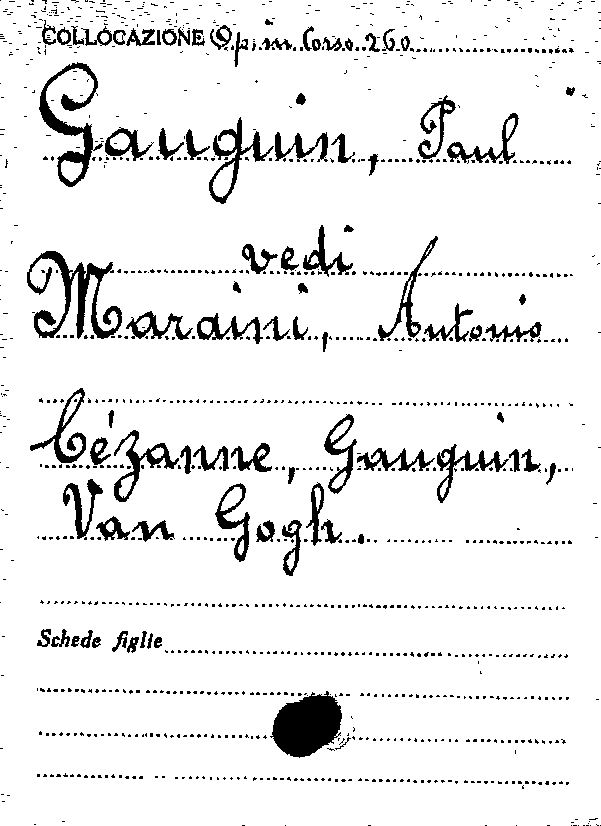 COLLOCAZIONE Op. in Corso 260
Gauguin, Paul
vedi
Maraini, Antonio
Cézanne, Gauguin,
Van Gogh.
Schede figlie